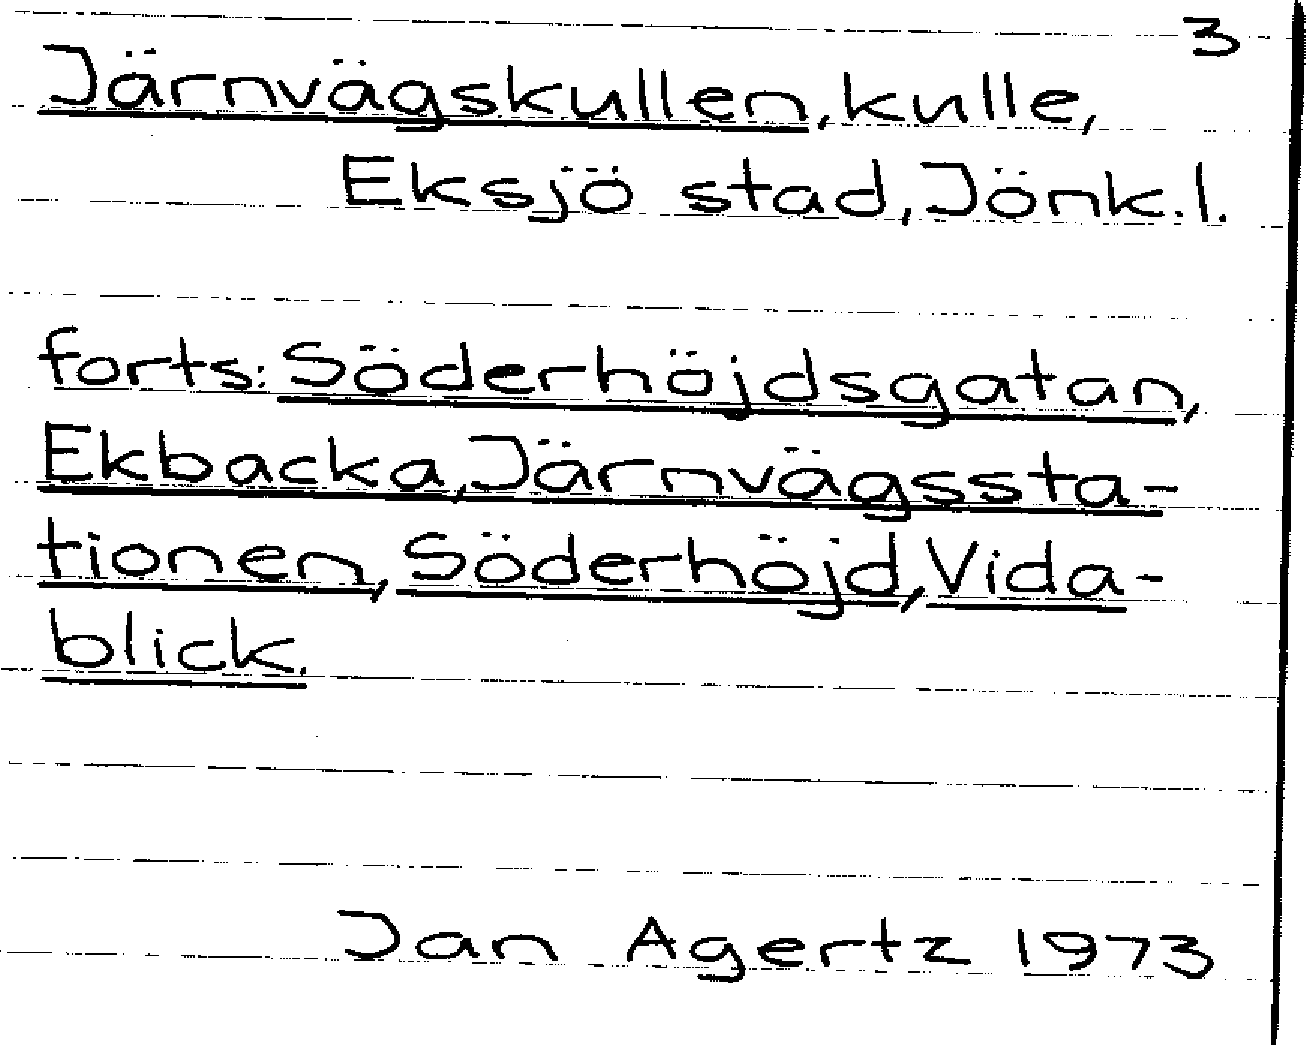 3
Järnvägskullen, kulle,
Eksjö stad, Jönk.l.
forts: Söderhöjdsgatan,
Ekbacka, Järnvägssta-
tionen, Söderhöjd, Vida-
blick.
Jan Agertz 1973